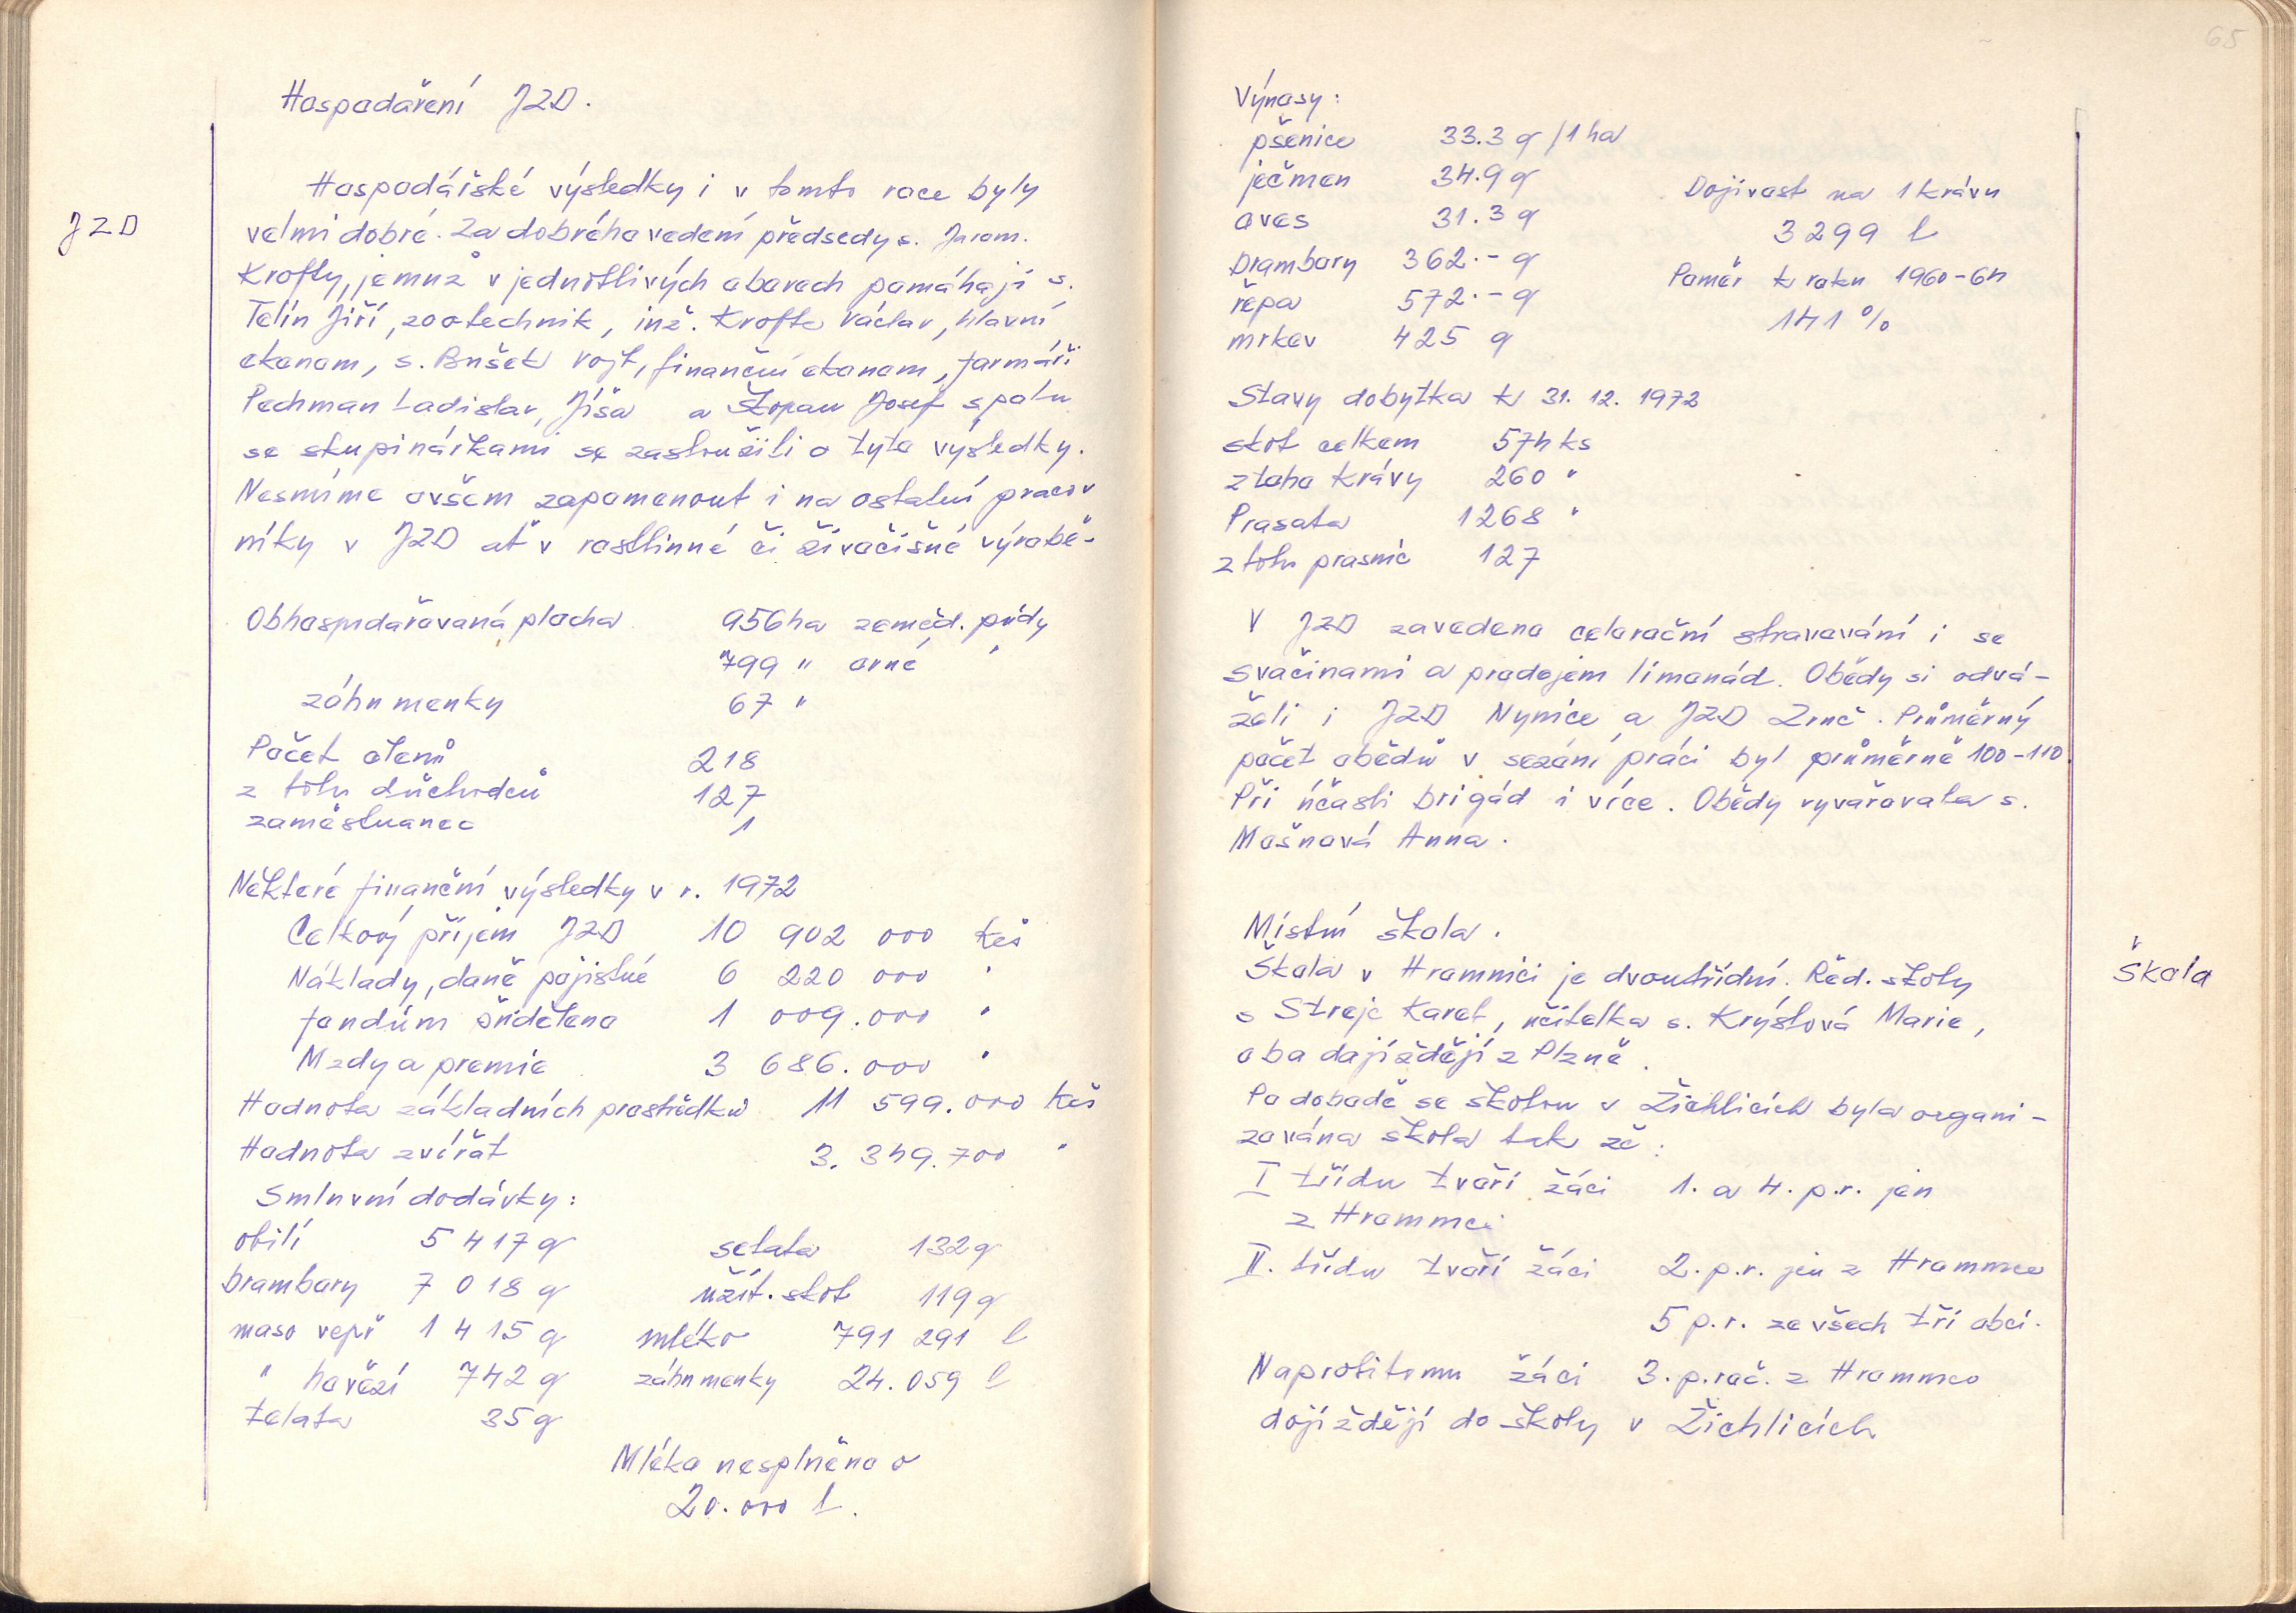 Hospodaření JZD.
JZD
Hospodářské výsledky i v tomto roce byly
velmi dobré. Za dobrého vedení předsedy s. Jarom.
Krofty, jemuž v jednotlivých oborech pomáhají s.
Telín Jiří, zootechnik, inž. Krofta Václav, hlavní
ekonom, s. Bušek Vojt, finanční ekonom, farmáři
Pechman Ladislav, Jíša a Štopan Josef spolu
se skupinářkami se zasloužili o tyto výsledky.
Nesmíme ovšem zapomenout i na ostatní pracov
níky v JZD ať v rostlinné či živočišné výrobě-
Obhospodařovaná plocha 956 ha zeměd. půdy
799 " orné "
záhumenky 67 "
Počet členů 218
z toho důchodců 127
zaměstnanec 1
Některé finanční výsledky v r. 1972
Celkový příjem JZD 10 902 000 Kčs
Náklady, daně pojistné 6 220 000 "
fondům přiděleno 1 009.000 "
Mzdy a premie 3 686.000 "
Hodnota základních prostředků 11 599.000 Kčs
Hodnota zvířat 3.349.700 "
Smluvní dodávky:
obilí 5 417 q selata 132 q
brambory 7 018 q užit. skot 119 q
maso vepř 1 415 q mléko 791 291 l
" hovězí 742 q záhumenky 24.059 l
telata 35 q
Mléka nesplněno o
20.000 l.
65
Výnosy:
pšenice 33.3 q /1 ha
ječmen 34.9 q
oves 31.3 q
brambory 362.- q
řepa 572.- q
mrkev 425 q
Dojivost na 1 krávu
3299 l
Poměr k roku 1960-64
141 %
Stavy dobytka k 31. 12. 1972
skot celkem 574 ks
z toho krávy 260 "
Prasata 1268 "
z toho prasnic 127
V JZD zavedeno celoroční stravování i se
svačinami a prodejem limonád. Obědy si odvá-
želi i JZD Nynice a JZD Zruč. Průměrný
počet obědů v sezóní práci byl průměrně 100-110.
Při účasti brigád i více. Obědy vyvařovala s.
Mašnová Anna.
Místní škola.
Škola
Škola v Hromnici je dvoutřídní. Řed. školy
s Strejc Karel, učitelka s. Krýslová Marie,
oba dojíždějí z Plzně.
Po dohodě se školou v Žichlicích byla organi-
zována škola tak že:
I třídu tvoří žáci 1. a 4. p.r. jen
z Hromnic
II. třídu tvoří žáci 2. p.r. jen z Hromnic
5 p.r. ze všech tří obcí.
Naprotitomu žáci 3. p. roč. z Hromnic
dojíždějí do školy v Žichlicích